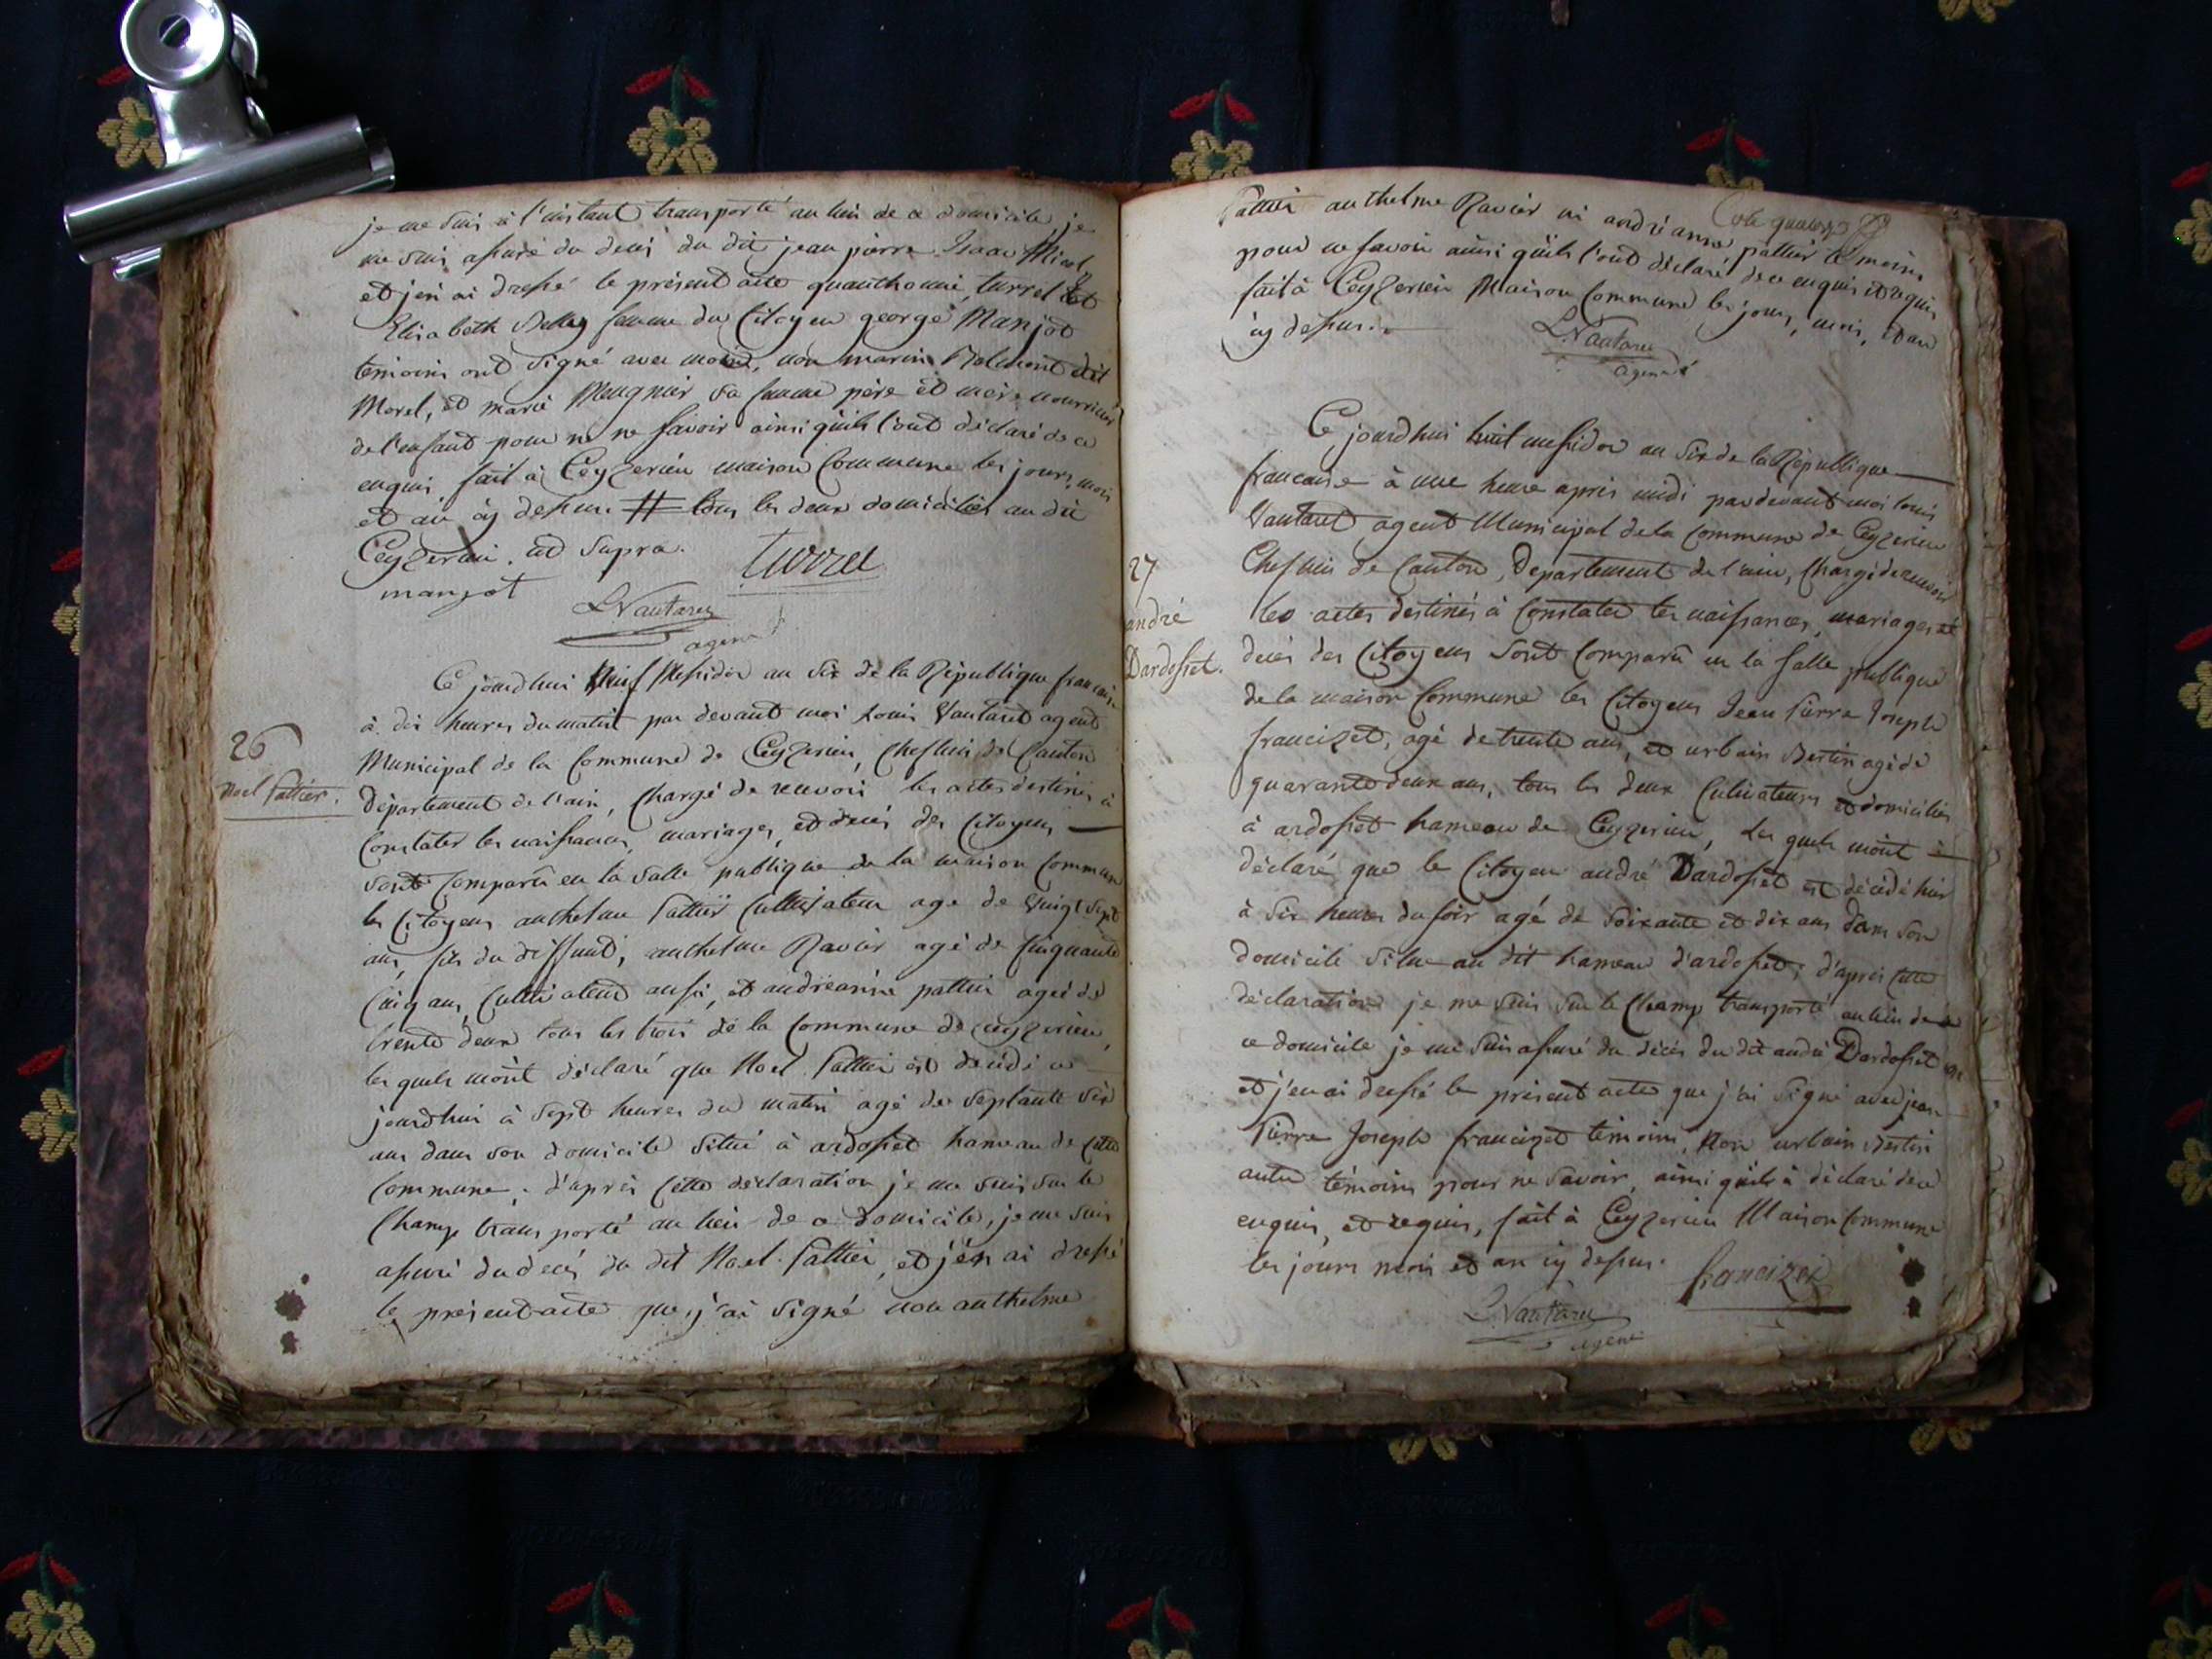 je me suis à l'instant transporté au lieu de ce domicile, je
me suis assuré du deces du dit jean pierre Isaac
et j'en ai dressé le présent acte turrel et
Elisabeth femme du Citoyen george Manjot
temoins ont signé avec moi, non marin dit
Morel, et marie Meugnier sa femme père et mère nourriciers
de l'enfant pour ne savoir ainsi qu'ils l'ont déclaré de ce
enquis, fait à Ceyzerieu maison Commune les jours, mois
et an cy dessus. # tous les deux domiciliés au dit
Ceyzerieu. ut supra.
Turrel
manjot
L. Vautaret
agent
26
Noel Pattier.
Ce jourd'hui Neuf Messidor an Six de la République française
à dix heures du matin par devant moi Louis Vautaret agent
Municipal de la Commune de Ceyzerieu, Cheflieu de Canton
Département de l'ain, Chargé de recevoir les actes destinés à
Constater les naissances, mariages, et decés des Citoyens
sont Comparû en la salle publique de la maison Commune
les Citoyens anthelme Pattier Cultivateur age de Vuingt sept
ans, fils du deffunt, anthelme Ravier agé de Cinquante
Cinq ans, Cultivateur aussi, et andréanne pattier ageé de
trente deux tous les trois de la Commune de ceyzerieu,
les quels m'ont déclaré que Noel Pattier est decédé ce
jourd'hui à Sept heures du matin agé de Septante Six
ans dans son domicile situé à ardosset hameau de Cette
Commune, d'après Cette déclaration je me suis sur le
Champ transporté au lieu de ce domicile, je me suis
assuré du decés du dit Noel Pattier, et j'en ai dressé
le présent acte que j'ai signé non anthelme
Cote
Pattier anthelme Ravier ni andréanne pattier témoins
pour ne savoir ainsi qu'ils l'ont déclaré de ce enquis et requis
fait à Ceyzerieu Maison Commune les jours, mois, et an
cy dessus.
L. Vautaret
agent
27
andré
Dardosset.
Ce jourd'hui huit messidor an Six de la République
française à une heure après midi par devant moi Louis
Vautaret agent Municipal de la Commune de Ceyzerieu
Cheflieu de Canton, Département de l'ain, Chargé de recevoir
les actes destinés à Constater les naissances, mariages et
decés des Citoyens sont Comparû en la Salle publique
de la maison Commune les Citoyens Jean Pierre Joseph
francizet, agé de trente ans, et urbain Bertin agé de
quarante deux ans, tous les deux Cultivateurs et domiciliés
à ardosset hameau de Ceyzerieu, Les quels m'ont
déclaré que le Citoyen andré Dardosset est décédé hier
à Six heures du soir agé de Soixante et dix ans dans son
domicile situe au dit hameau d'ardosset, d'après Cette
déclaration je me suis sur le Champ transporté au lieu de
ce domicile je me suis assuré du décés du dit andré Dardosset
et j'en ai dressé le présent acte que j'ai Signé avec jean
Pierre Joseph francizet témoins, Non urbain Bertin
autre témoins pour ne savoir, ainsi qu'ils à déclaré de ce
enquis, et requis, fait à Ceyzerieu Maison Commune
les jours mois et an cy dessus.
francizet
L. Vautaret
agent